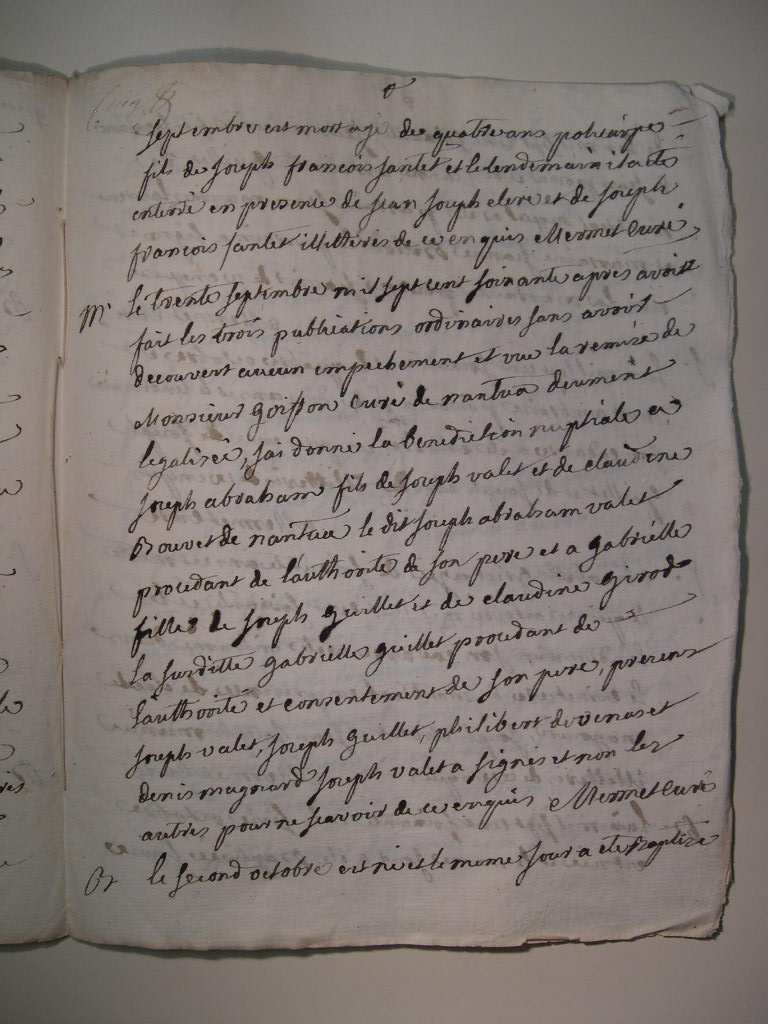 septembre est mort agé de quatre ans policarpe
fils de Joseph francois santet et le lendemain il a ete
enterré en presence de jean joseph clerc et de joseph
francois santet illitterés de ce enquis Mermet Curé
M le trente septembre mil sept cent soixante apres avoir
fait les trois publications ordinaires sans avoir
decouvert aucun empechement et vue la remise de
Monsieur goiffon curé de nantua deument
legalisée, jai donné la benediction nuptiale a
joseph abraham fils de joseph valet et de claudine
Bouvet de nantua le dit joseph abraham valet
procedant de l'authorité de son pere et a gabrielle
fille de joseph guillet et de claudine girod
la susditte gabrielle guillet procedant de
l'authorité et consentement de son pere, presens
joseph valet, joseph guillet, philibert devenas et
denis magnard joseph valet a signés et non les
autres pour ne scavoir de ce enquis Mermet Curé
B le second octobre est né et le meme jour a ete Baptisé